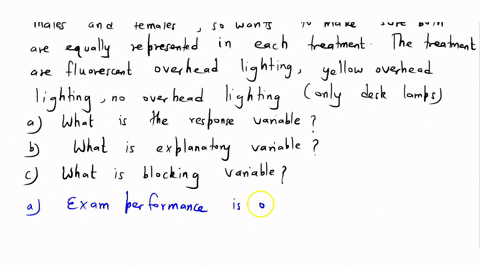 males and females, so wants to make sure both
are equally represented in each treatment. The treatment
are fluorescent overhead lighting, yellow overhead
lighting, no overhead lighting (only desk lamps)
a) What is the response variable?
b) What is explanatory variable?
c) What is blocking variable?
a) Exam performance is o